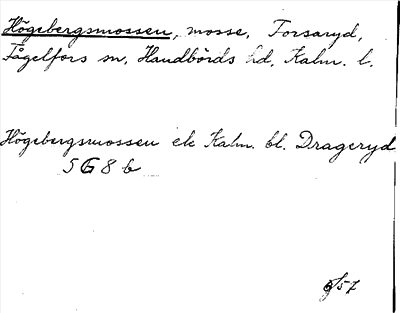 Högebergsmossen, mosse, Forsaryd,
Fågelfors sn, Handbörds hd, Kalm. l.
Högebergsmossen ek Kalm. bl. Drageryd
5G8b
/57